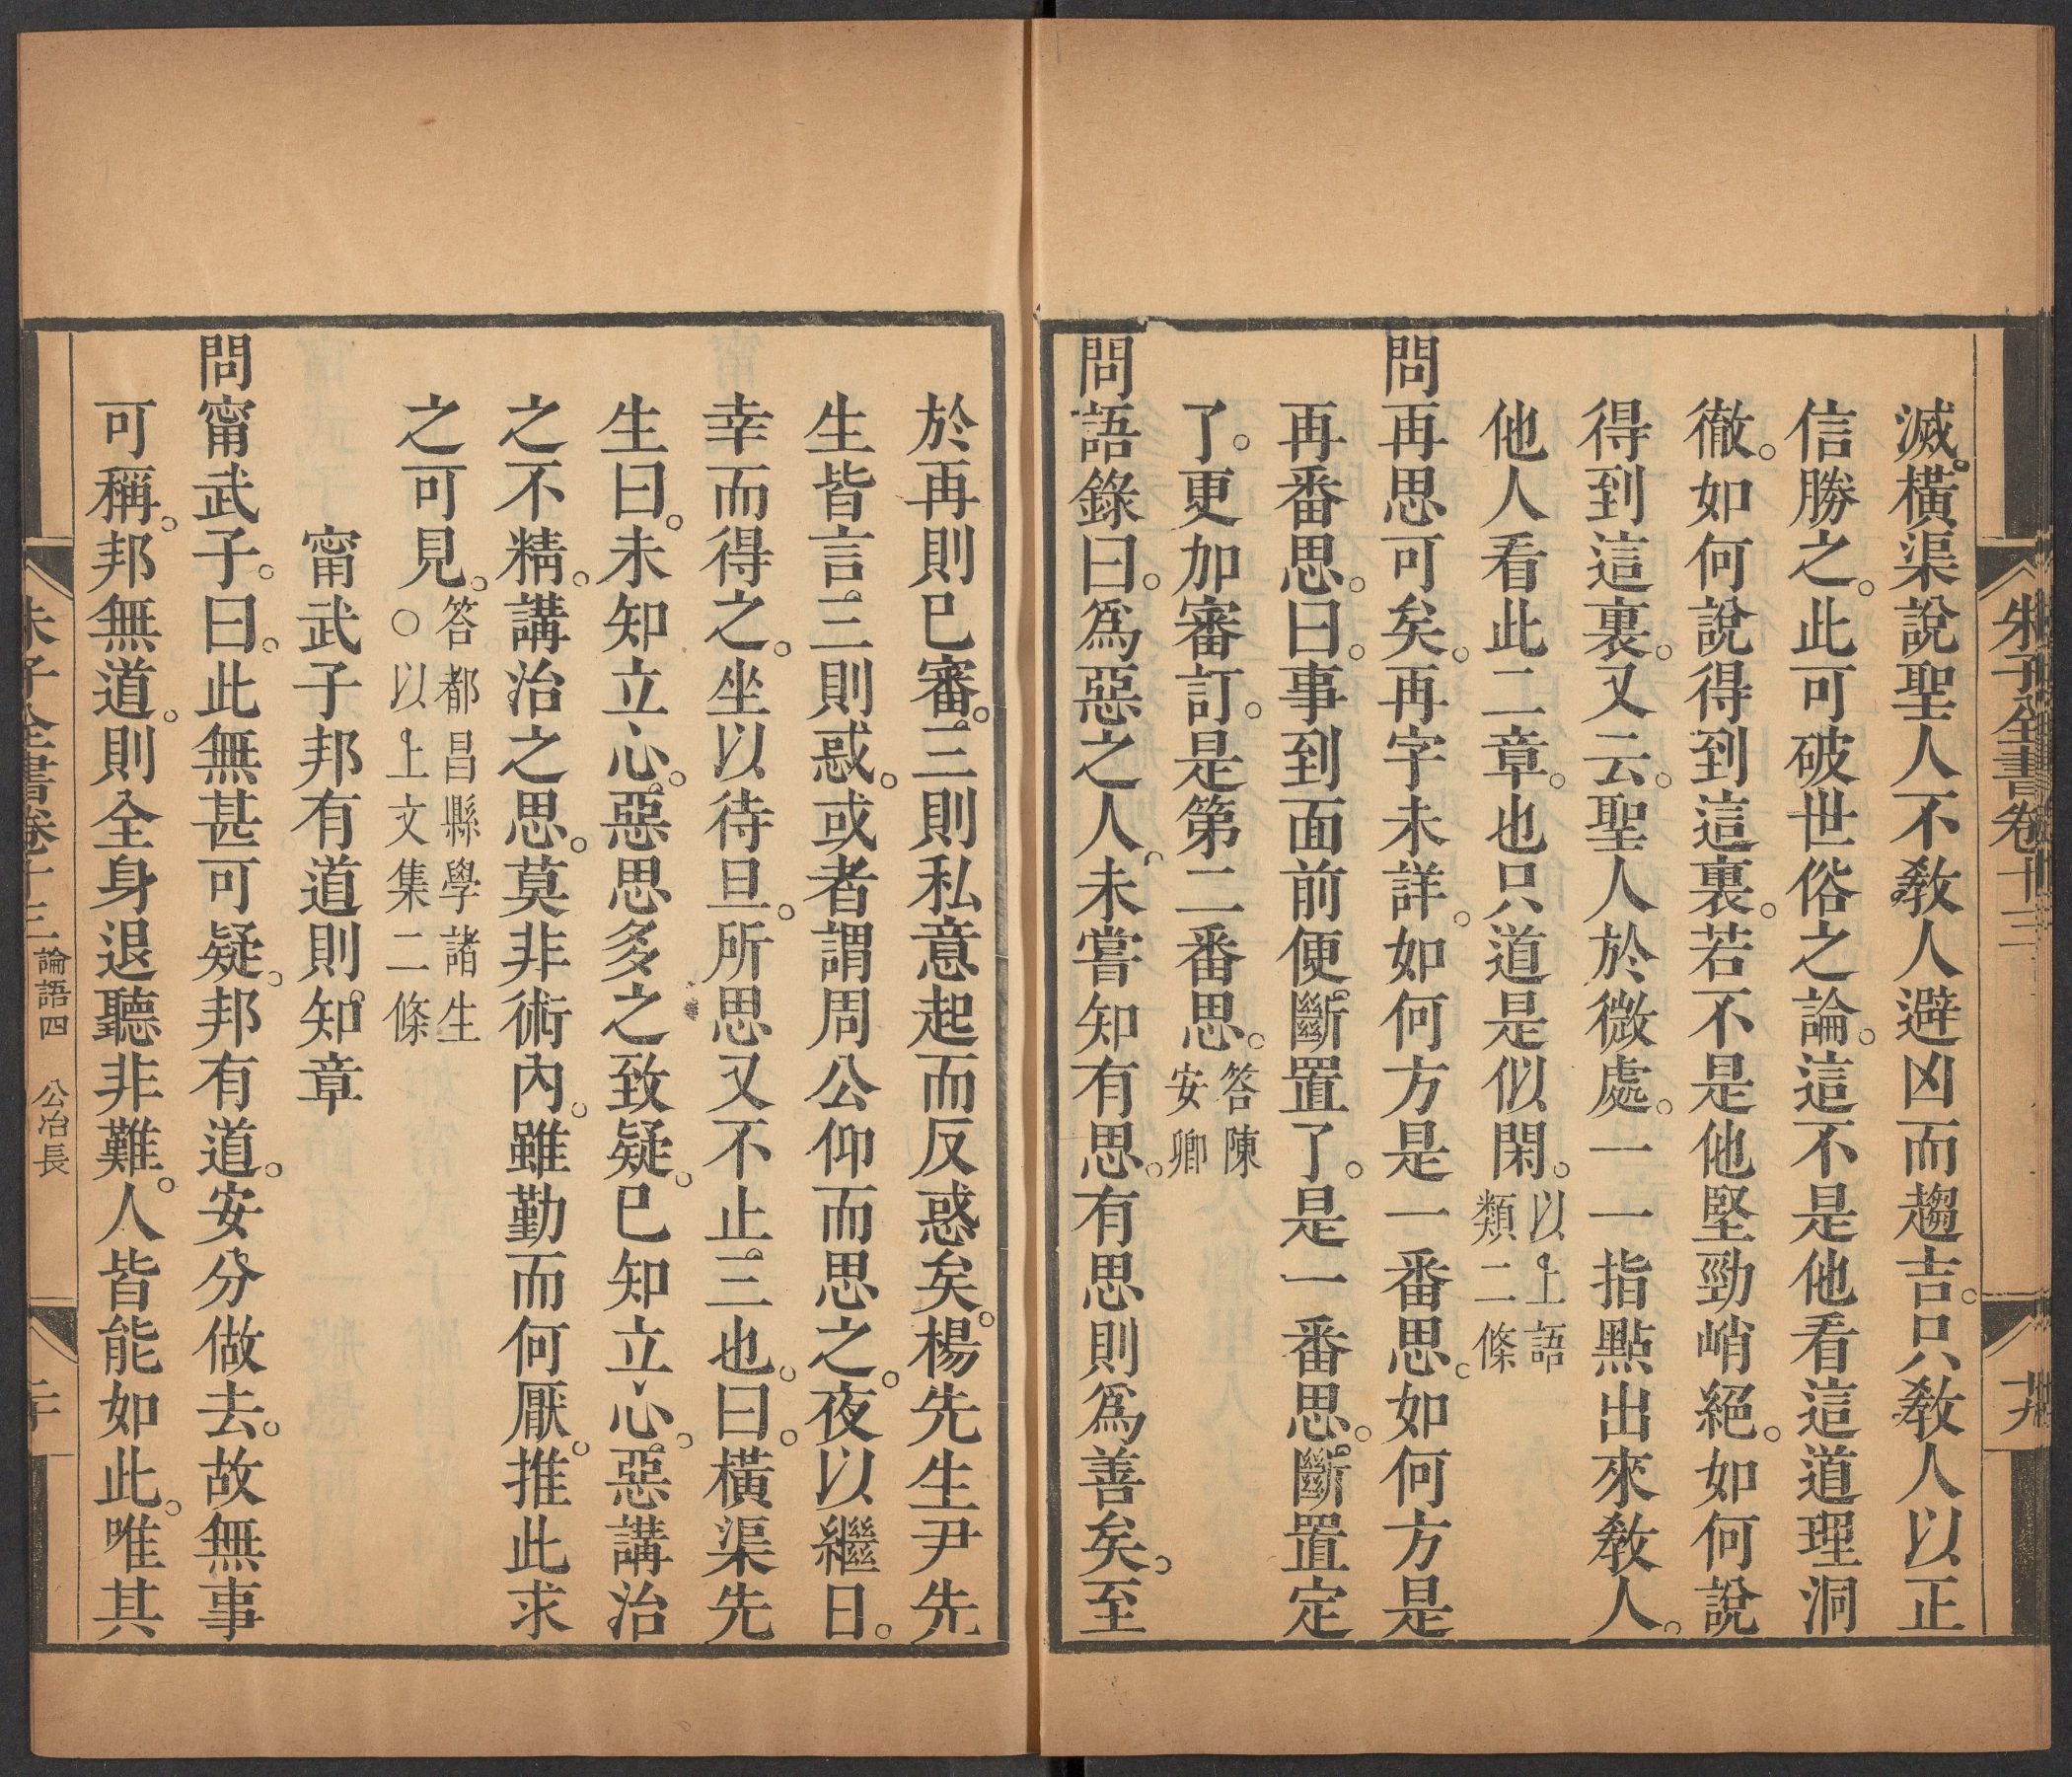 朱子全書卷十三
十九
滅橫渠說聖人不敎人避凶而趨吉。只敎人以正
信勝之。此可破世俗之論。這不是他看這道理洞
徹。如何說得到這裏。若不是他堅勁峭絕。如何說
得到這裏。又云。聖人於微處。一一指點出來敎人。
他人看此二章。也只道是似閑。以上語
類二條
問再思可矣。再字未詳。如何方是一番思。如何方是
再番思。曰。事到面前便斷置了。是一番思。斷置定
了。更加審訂。是第二番思。答陳
安卿
問語錄曰。爲惡之人。未嘗知有思。有思則爲善矣。至
於再則已審。三則私意起而反惑矣。楊先生尹先
生皆言。三則惑。或者謂周公仰而思之。夜以繼日。
幸而得之。坐以待旦。所思又不止三也。曰。橫渠先
生曰。未知立心。惡思多之致疑。已知立心。惡講治
之不精。講治之思。莫非術內。雖勤而何厭。推此求
之可見。答都昌縣學諸生
○以上文集二條
甯武子邦有道則知章
問甯武子。曰。此無甚可疑。邦有道。安分做去。故無事
可稱。邦無道。則全身退聽非難。人皆能如此。唯其
朱子全書卷十三 論語四 公冶長
二十